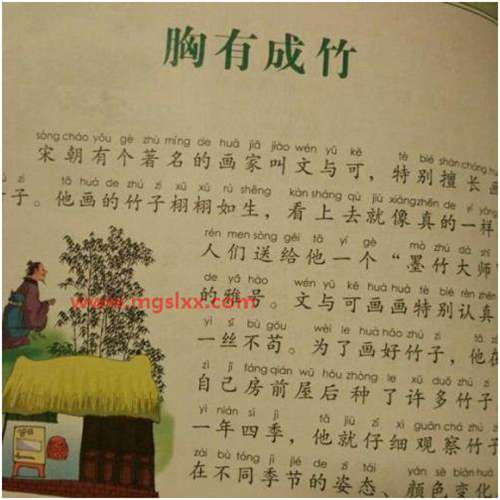 胸有成竹
sòng cháo yǒu gè zhù míng de huà jiā jiào wén yǔ kě
宋朝有个著名的画家叫文与可，特别擅长画
tā huà de zhú zi xǔ xǔ rú shēng kàn shàng qù jiù xiàng zhēn de yí yàng
子。他画的竹子栩栩如生，看上去就像真的一样
rén men sòng gěi tā yí gè mò zhú dà shī
人们送给他一个“墨竹大师”
de yǎ hào wén yǔ kě huà huà tè bié rèn
的雅号。文与可画画特别认真
yì sī bù gǒu wèi le huà hǎo zhú zi tā
一丝不苟。为了画好竹子，他在
zì jǐ fáng qián wū hòu zhòng le xǔ duō zhú zi
自己房前屋后种了许多竹子
yì nián sì jì tā jiù zǐ xì guān chá zhú
一年四季，他就仔细观察竹子
zài bù tóng jì jié de zī tài yán sè biàn huà
在不同季节的姿态、颜色变化
www.mgslxx.com